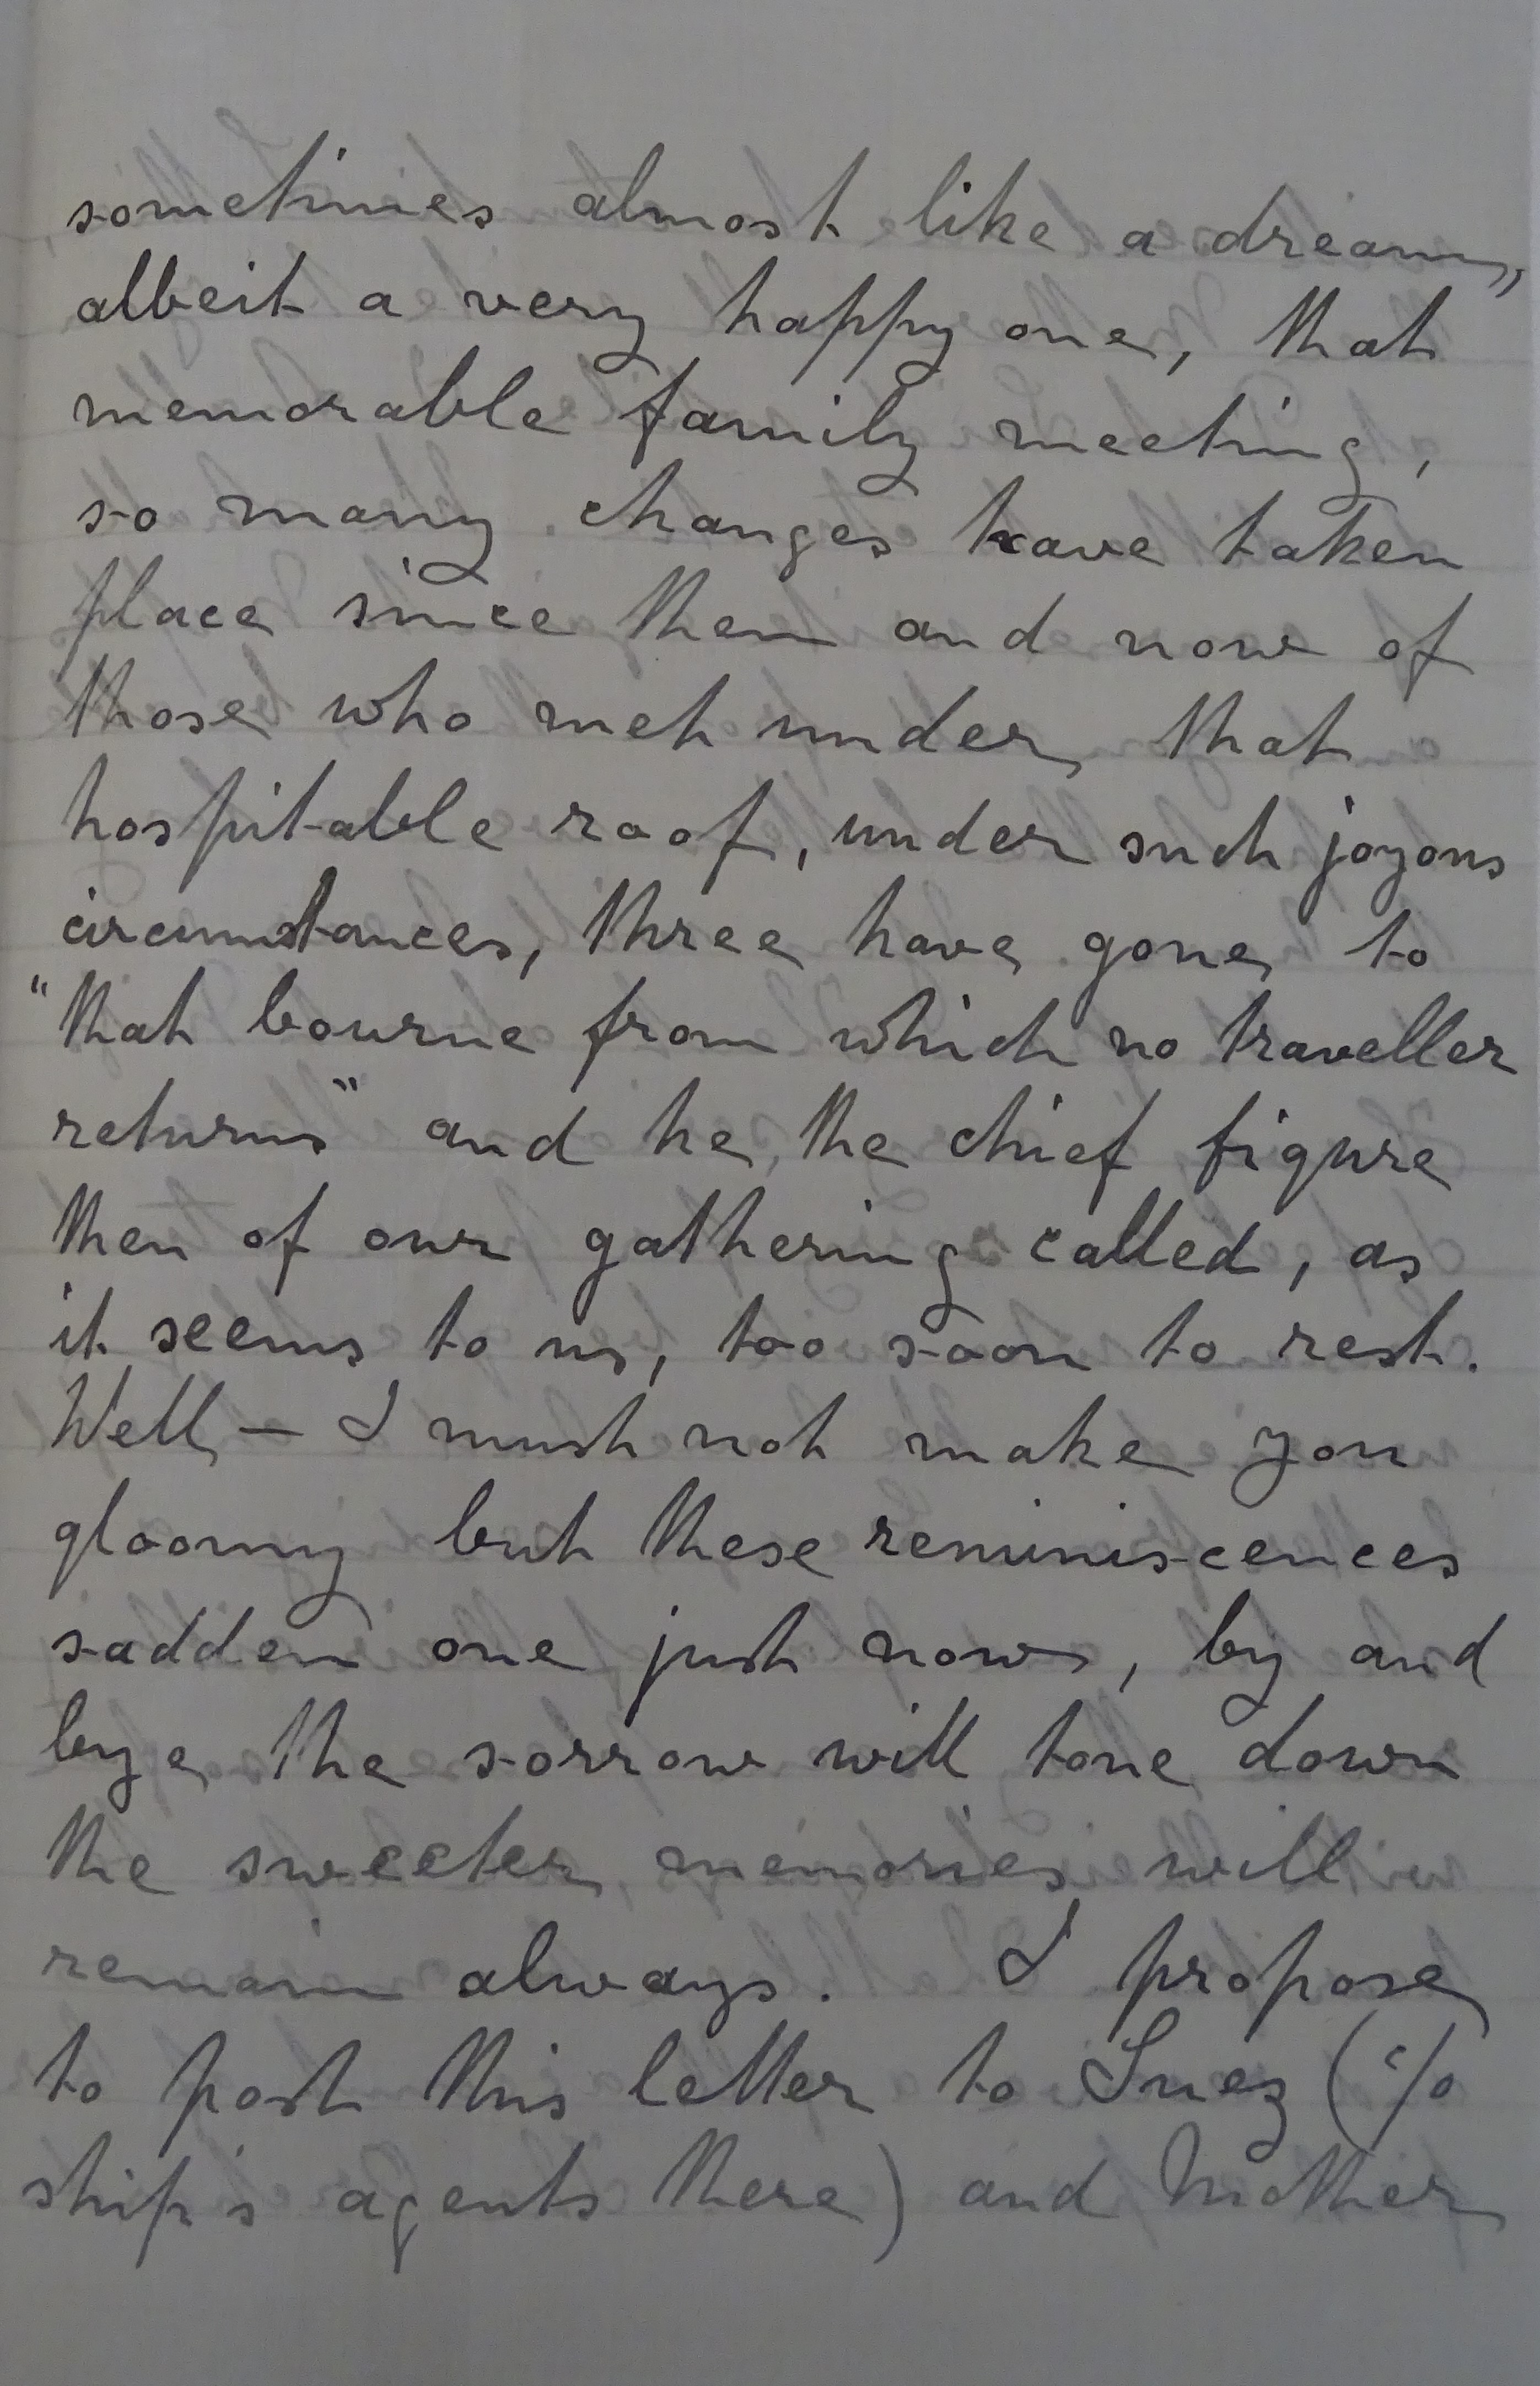 sometimes almost like a dream,
albeit a very happy one, that
memorable family meeting,
so many changes have taken
place since then and now of
those who met under that
hospitable roof, under such joyous
circumstances, three have gone to
"that bourne from which no traveller
returns" and he, the chief figure
then of our gathering called, as
it seems to us, too soon to rest.
Well, — I must not make you
gloomy but these reminiscences
sadden one just now, by and
bye the sorrow will tone down
the sweeter, memories will
remain always. I propose
to post this letter to Suez (c/o
ship's agents there) and Mother